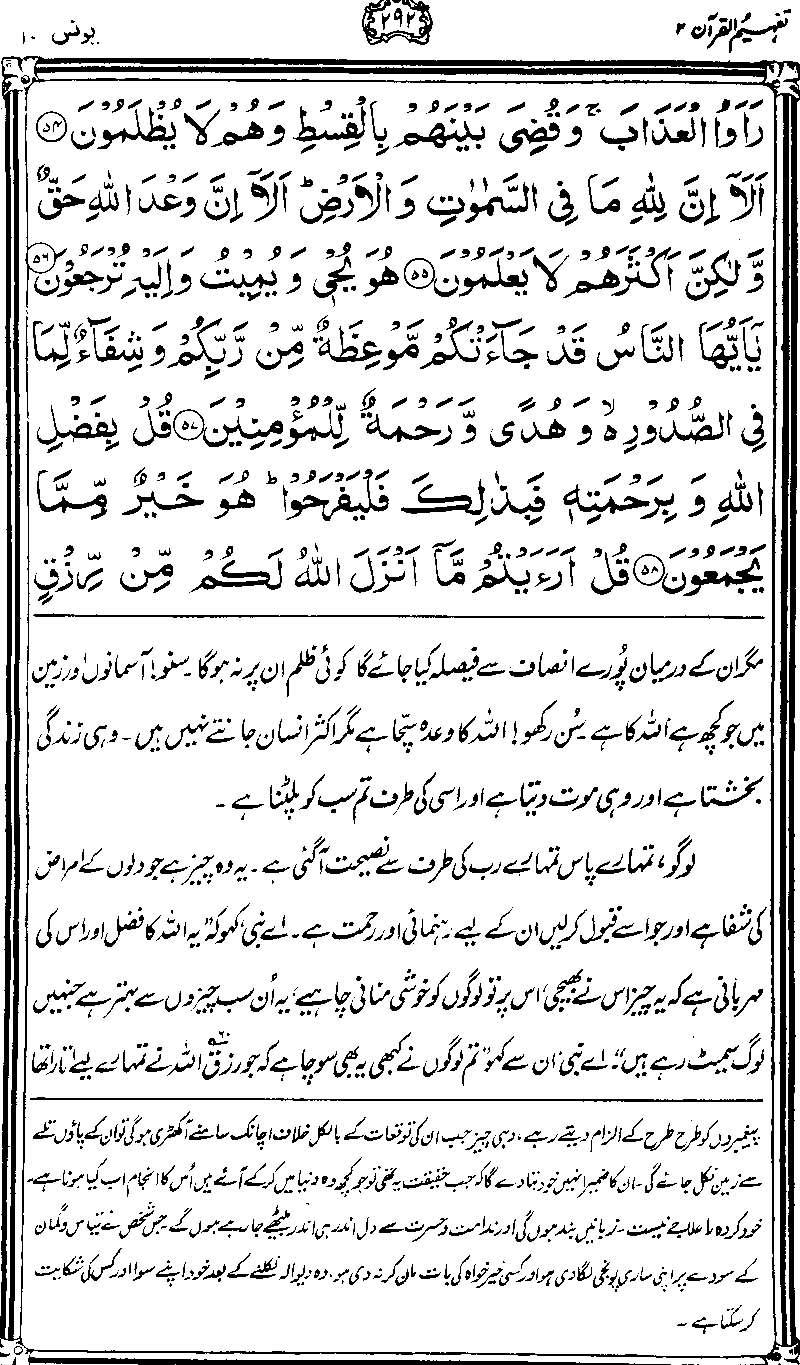 تفہیم القرآن ۲
۲۹۲
یونس ۱۰
رَاَوُا الْعَذَابَ ۚ وَقُضِىَ بَيْنَهُمْ بِالْقِسْطِ وَهُمْ لَا يُظْلَمُوْنَ ۵۴
اَلَآ اِنَّ لِلّٰهِ مَا فِى السَّمٰوٰتِ وَالْاَرْضِ ؕ اَلَآ اِنَّ وَعْدَ اللّٰهِ حَقٌّ
وَّلٰكِنَّ اَكْثَرَهُمْ لَا يَعْلَمُوْنَ ۵۵ هُوَ يُحْىٖ وَيُمِيْتُ وَاِلَيْهِ تُرْجَعُوْنَ ۵۶
يٰۤاَيُّهَا النَّاسُ قَدْ جَآءَتْكُمْ مَّوْعِظَةٌ مِّنْ رَّبِّكُمْ وَشِفَآءٌ لِّمَا
فِى الصُّدُوْرِ ۙ وَهُدًى وَّرَحْمَةٌ لِّلْمُؤْمِنِيْنَ ۵۷ قُلْ بِفَضْلِ
اللّٰهِ وَبِرَحْمَتِهٖ فَبِذٰلِكَ فَلْيَفْرَحُوْا ؕ هُوَ خَيْرٌ مِّمَّا
يَجْمَعُوْنَ ۵۸ قُلْ اَرَءَيْتُمْ مَّاۤ اَنْزَلَ اللّٰهُ لَكُمْ مِّنْ رِّزْقٍ
مگر ان کے درمیان پُورے انصاف سے فیصلہ کیا جائے گا کوئی ظلم ان پر نہ ہو گا۔ سنو! آسمانوں اور زمین
میں جو کچھ ہے اللہ کا ہے۔ سُن رکھو! اللہ کا وعدہ سچّا ہے مگر اکثر انسان جانتے نہیں ہیں۔ وہی زندگی
بخشتا ہے اور وہی موت دیتا ہے اور اسی کی طرف تم سب کو پلٹنا ہے۔
لوگو، تمہارے پاس تمہارے رب کی طرف سے نصیحت آگئی ہے۔ یہ وہ چیز ہے جو دلوں کے امراض
کی شفا ہے اور جو اسے قبول کرلیں ان کے لیے رہنمائی اور رحمت ہے۔ اے نبی، کہو کہ ”یہ اللہ کا فضل اور اس کی
مہربانی ہے کہ یہ چیز اس نے بھیجی، اس پر تو لوگوں کو خوشی منانی چاہیے، یہ اُن سب چیزوں سے بہتر ہے جنہیں
لوگ سمیٹ رہے ہیں“۔ اے نبی، ان سے کہو ”تم لوگوں نے کبھی یہ بھی سوچا ہے کہ جو رزق۶۰ اللہ نے تمہارے لیے اتارا تھا
پیغمبروں کو طرح طرح کے الزام دیتے رہے، وہی چیز جب ان کی توقعات کے بالکل خلاف اچانک سامنے آکھڑی ہوگی تو ان کے پاؤں تلے
سے زمین نکل جائے گی۔ ان کا ضمیر انہیں خود بتا دے گا کہ جب حقیقت یہ تھی تو جو کچھ وہ دنیا میں کرکے آئے ہیں اُس کا انجام اب کیا ہونا ہے۔
خود کردہ را علاجے نیست۔ زبانیں بند ہوں گی اور ندامت و حسرت سے دل اندر ہی اندر بیٹھے جا رہے ہوں گے۔ جس شخص نے قیاس و گمان
کے سودے پر اپنی ساری پونجی لگا دی ہو اور کسی خیر خواہ کی بات مان کر نہ دی ہو، وہ دیوالہ نکلنے کے بعد خود اپنے سوا اور کس کی شکایت
کر سکتا ہے۔